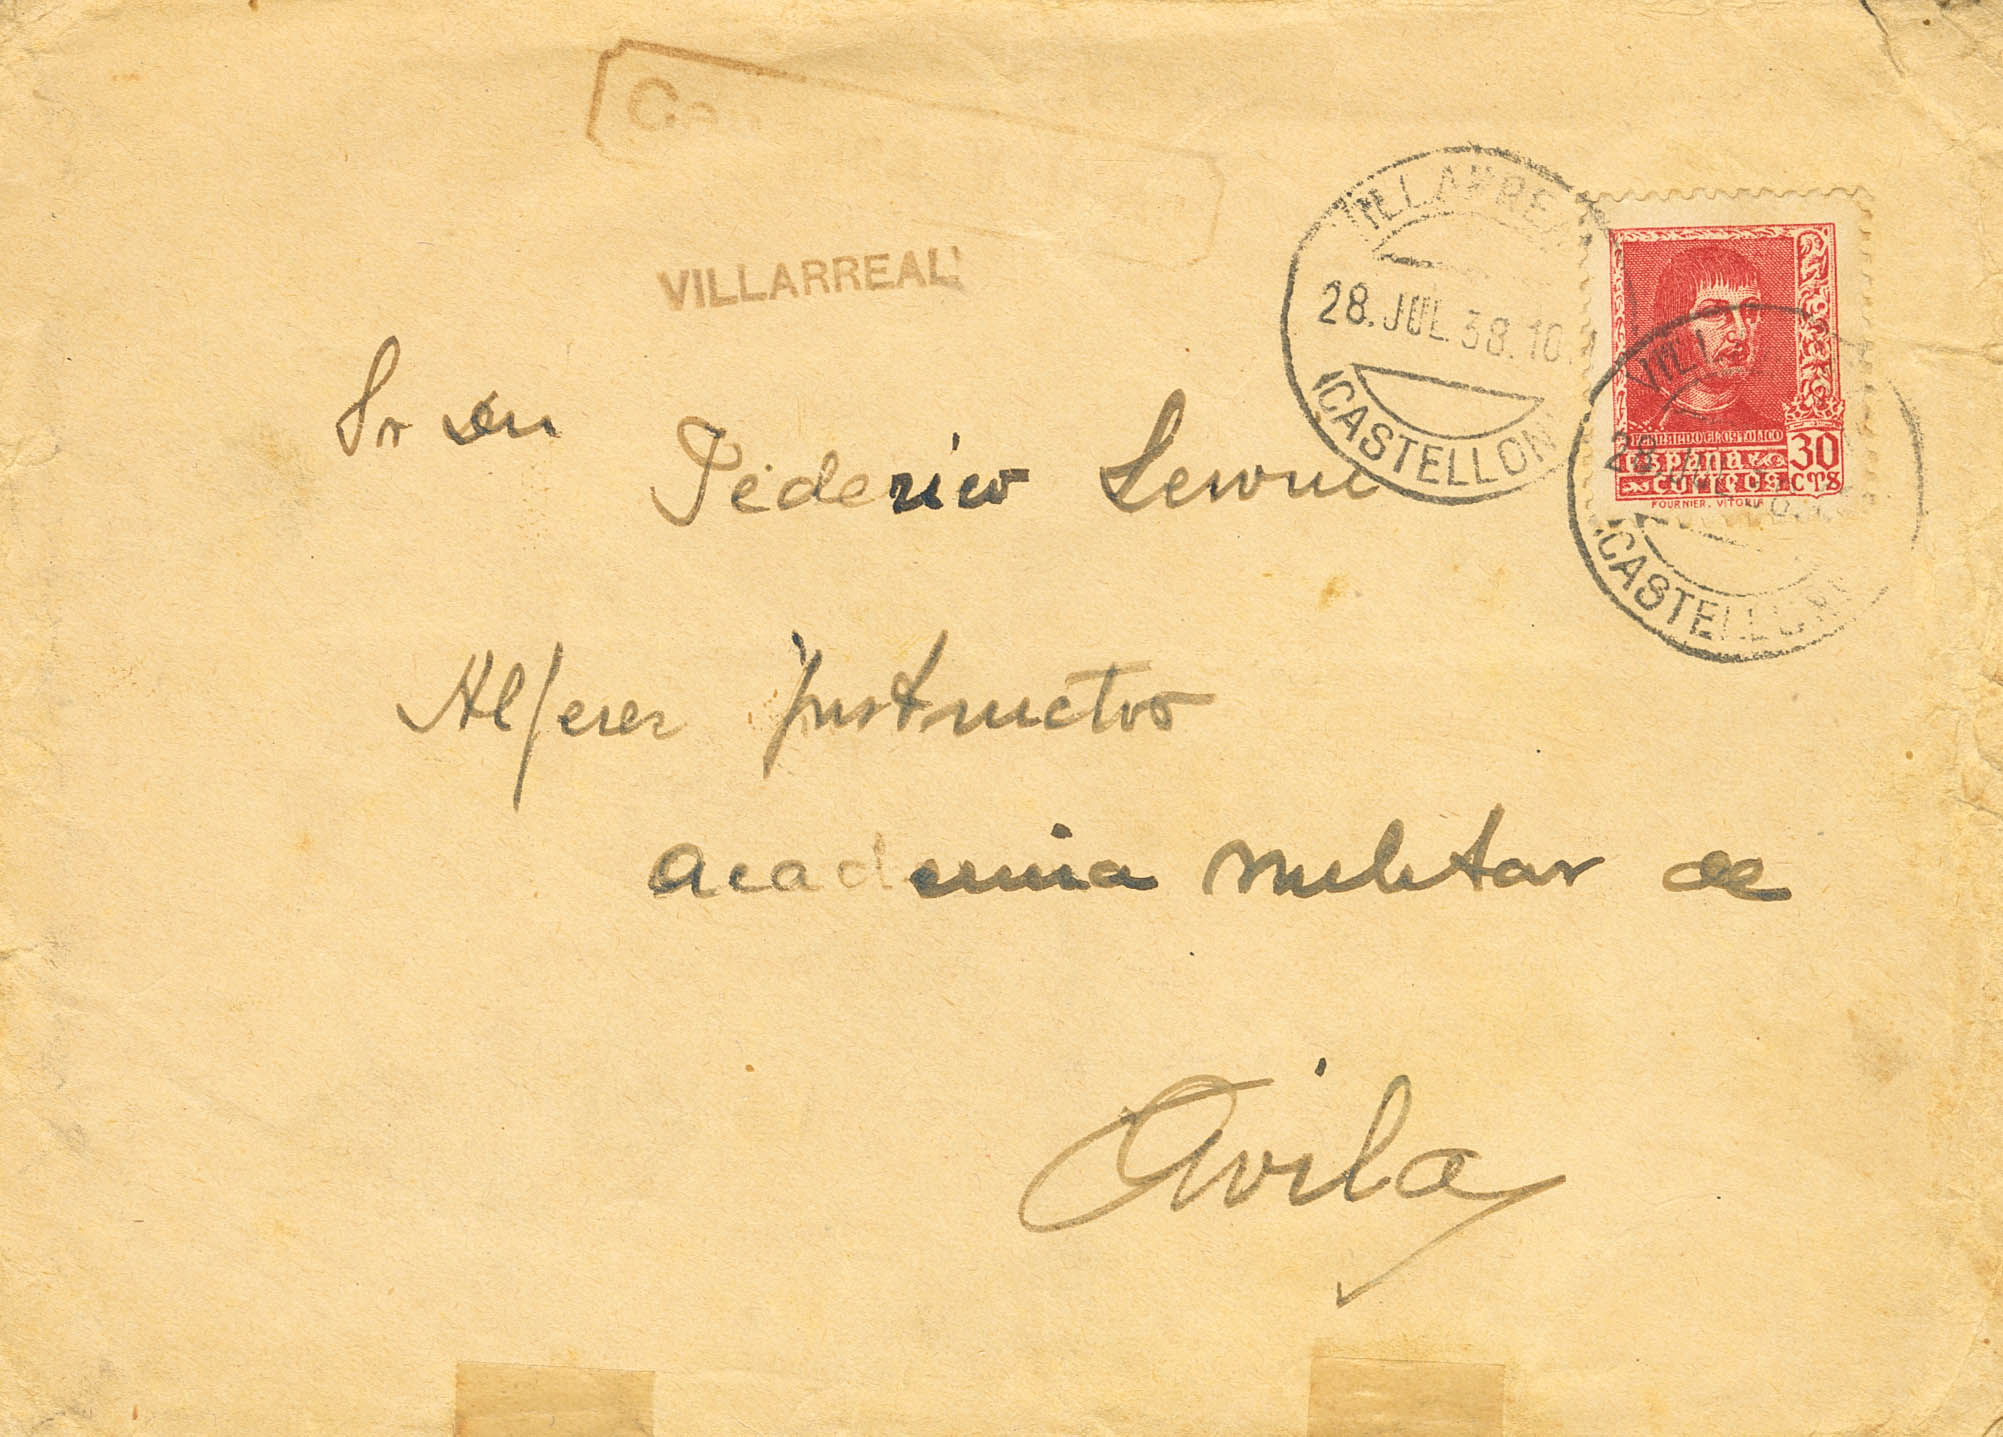 VILLARREAL
VILLARREAL
28.JUL.38.10
(CASTELLON)
FERNANDO EL CATOLICO
ESPAÑA
30
CORREOS
CTS
FOURNIER. VITORIA
28.JUL.38
(CASTELLON)
Sr Don
Federico
Alferez Instructor
academia militar de
Avila